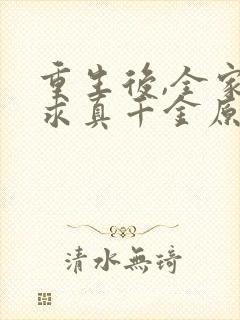 重生後,全家
求真千金原
清水無琦